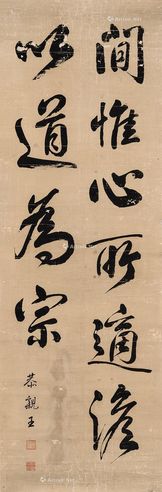 間惟心所適澹
以道為宗
恭親王